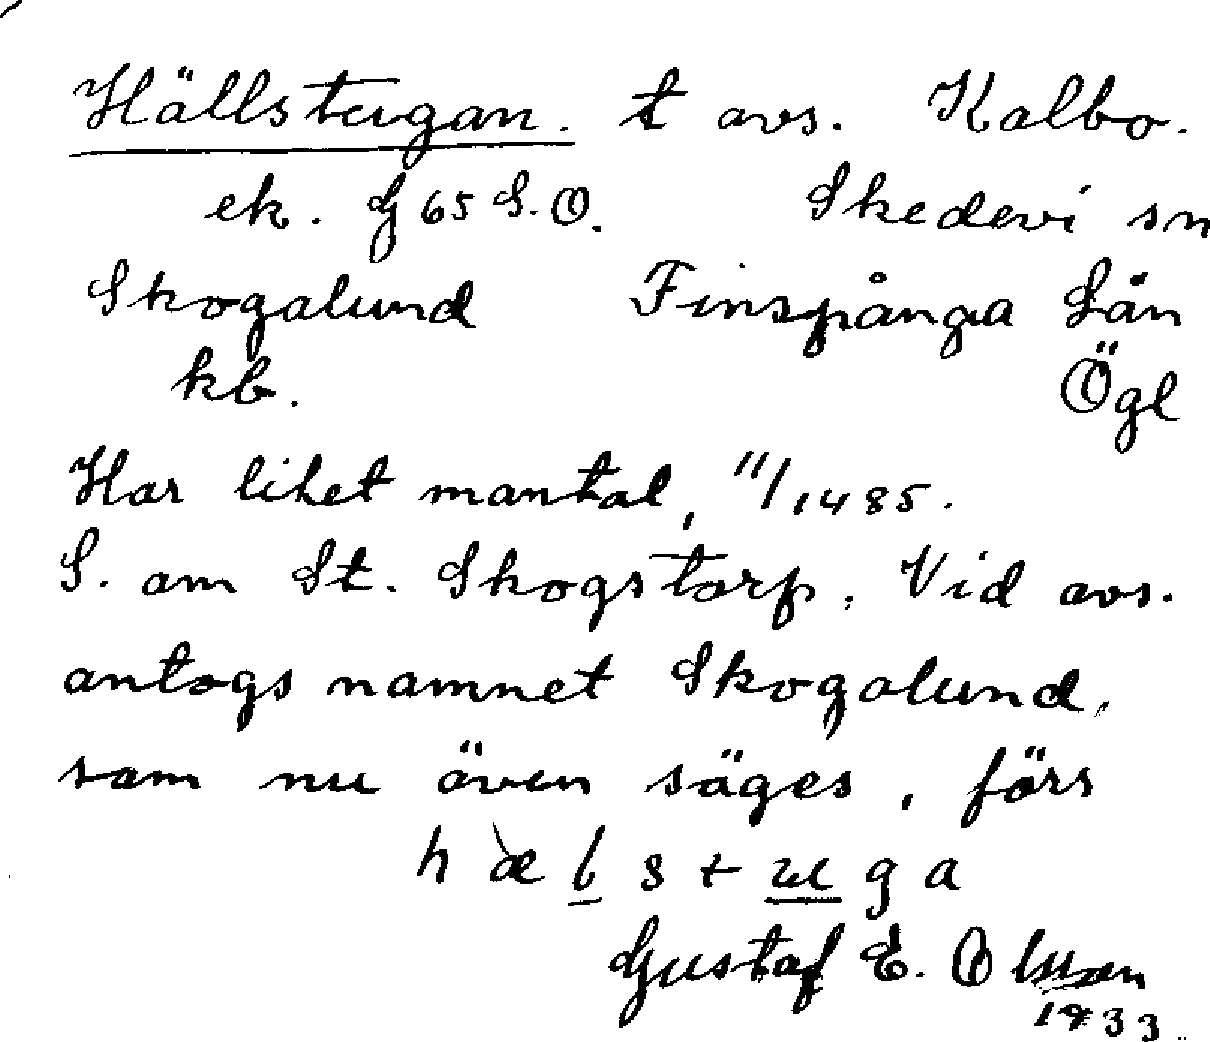 Hällstugan. t avs. Kalbo.
ek. G 65 S.O. Skedevi sn
Skogalund Finspånga Län
kb. Ögl
Har liket mantal, 11/1485.
S. om St. Skogstorp. Vid avs.
antogs namnet Skogalund,
som nu även säges, förr
hæ̀lstuga
Gustaf E. Olsson
1933